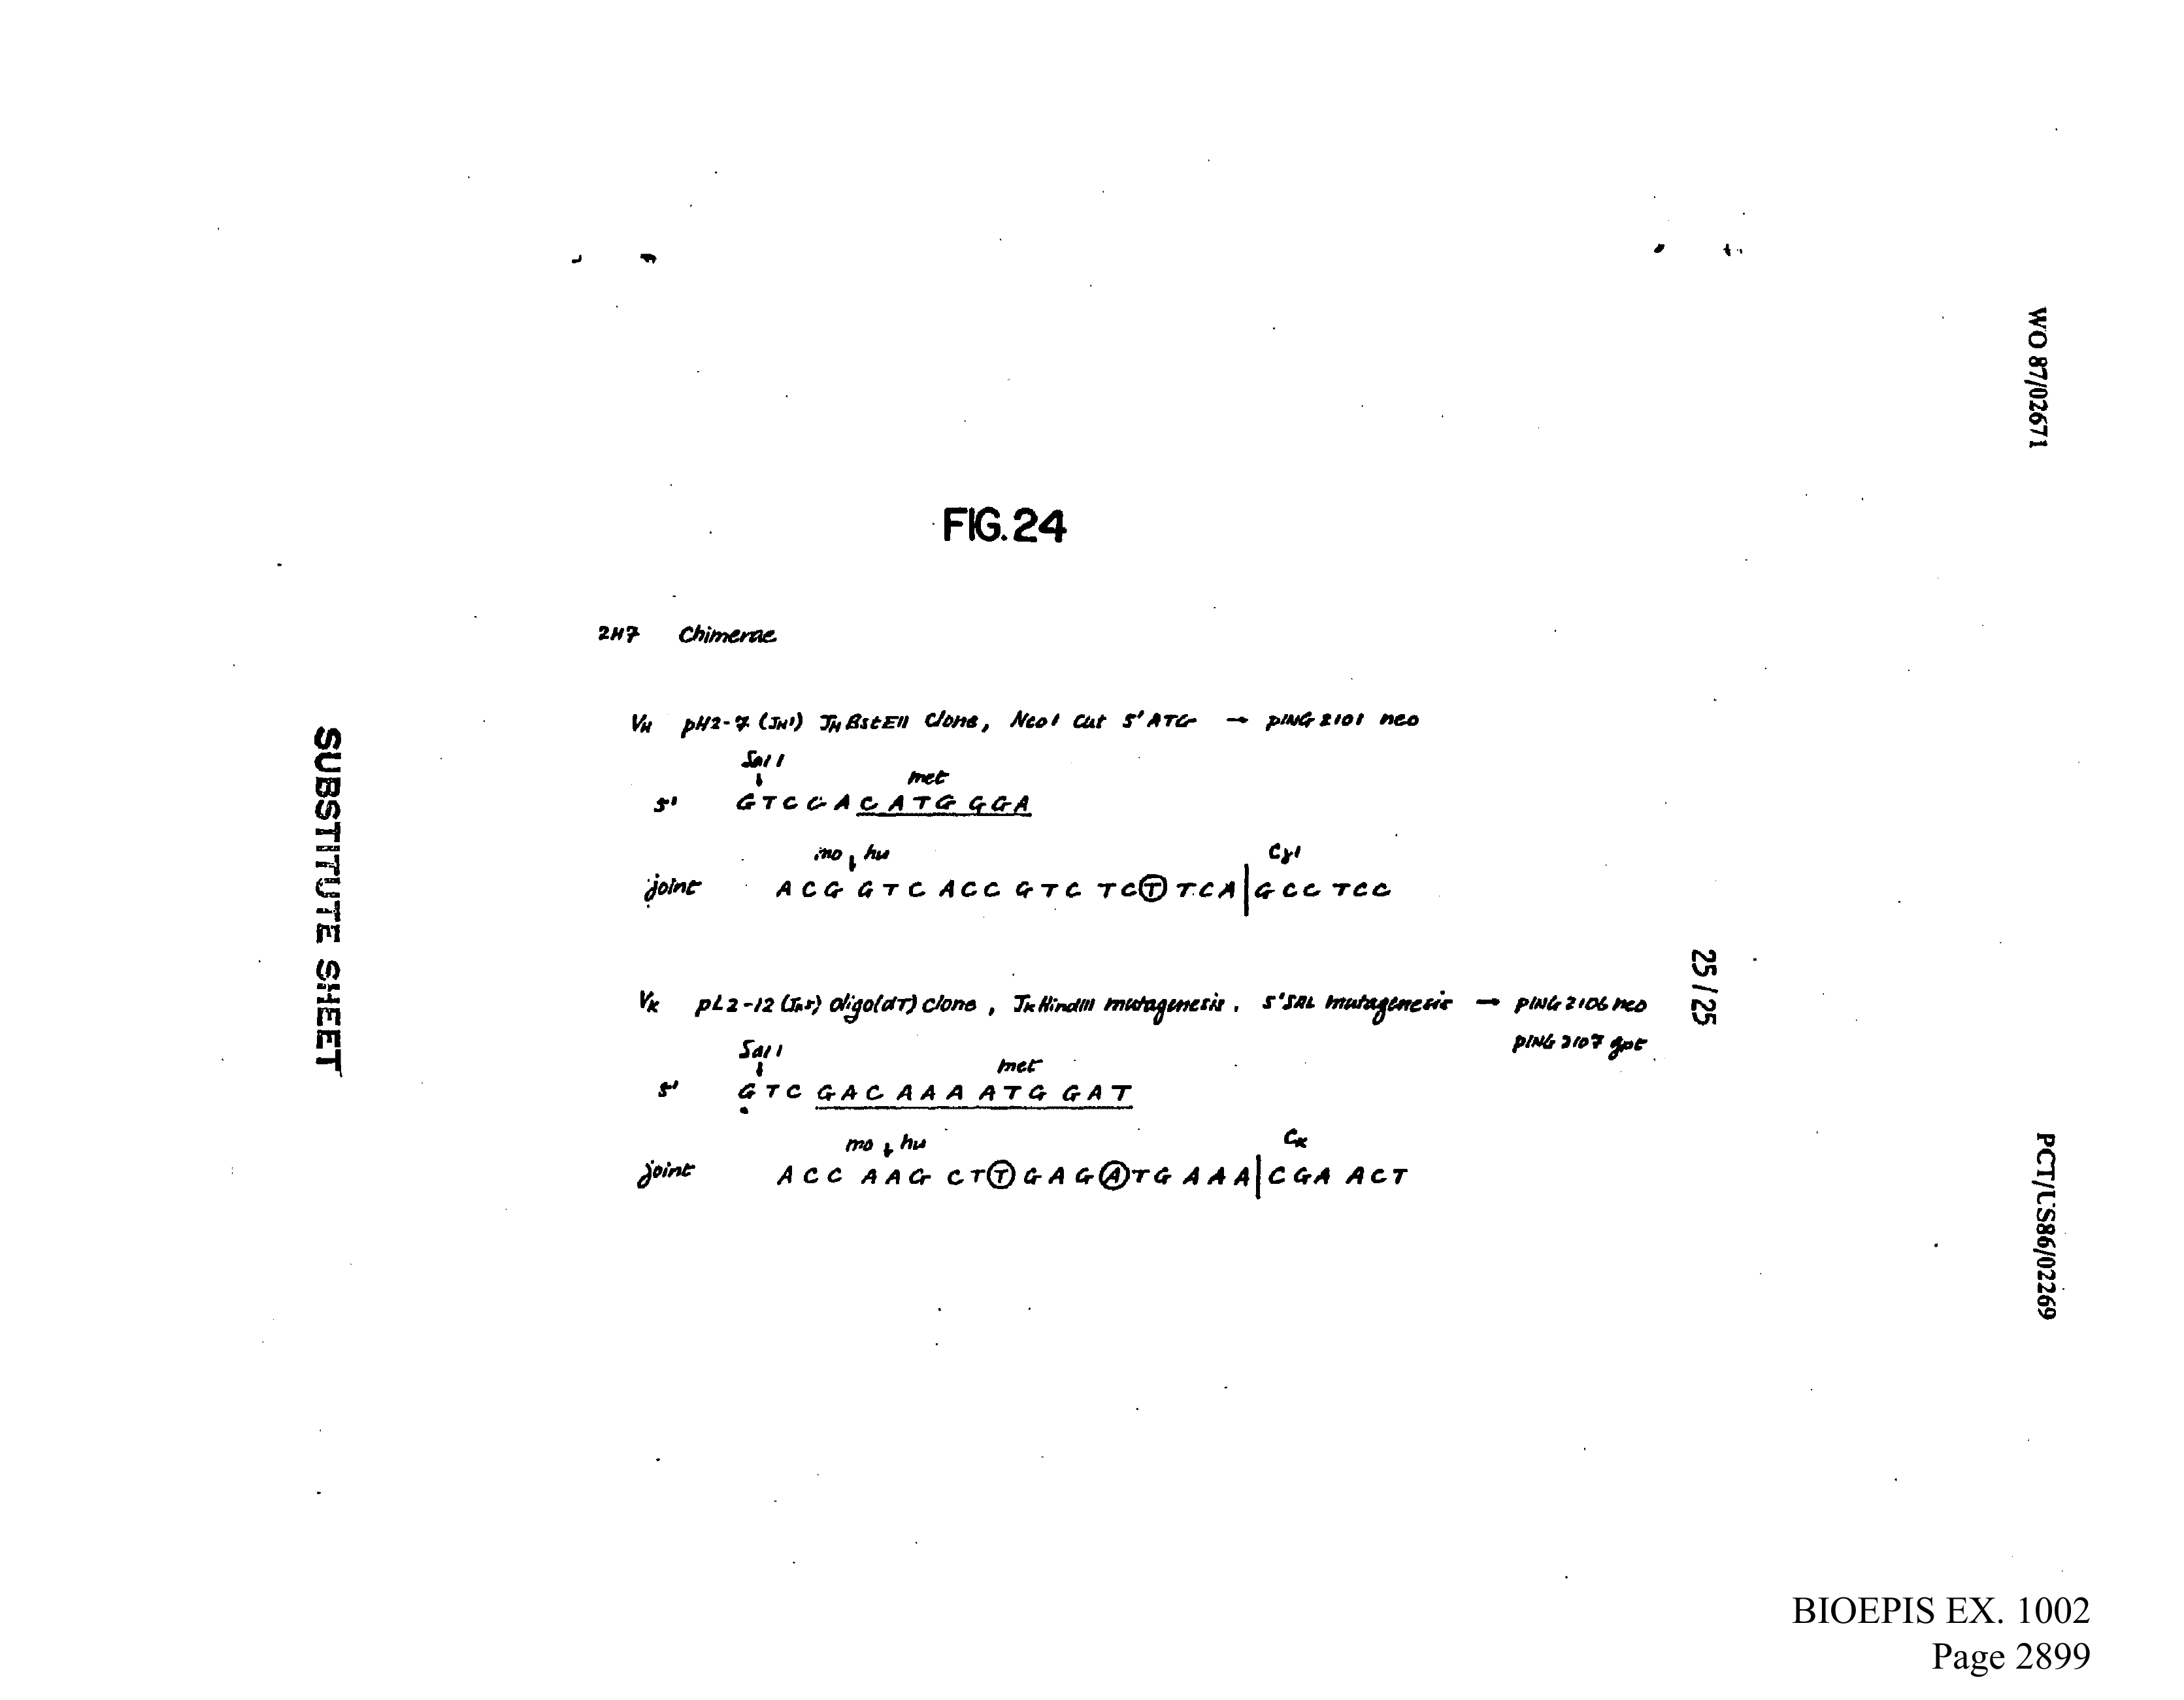 WO 87/02671
FIG.24
2H7 Chimerae
VH pH2-7 (JH1) JH BstEII Clone, Nco1 cut 5' ATG → pING 2101 neo
Sal1
↓ met
5' GTCGACATG GGA
mo ↓ hu Cγ1
joint ACG GTC ACC GTC TCT TCA|GCC TCC
25/25
VK pL2-12 (JK5) oligo(dT) clone, JK HindIII mutagenesis, 5' SAL mutagenesis → pING 2106 neo
pING 2107 gpt
Sal1
↓ met
5' GTC GAC AAA ATG GAT
mo ↓ hu CK
joint ACC AAG CTT GAG ATG AAA|CGA ACT
SUBSTITUTE SHEET
PCT/US86/02269
BIOEPIS EX. 1002
Page 2899